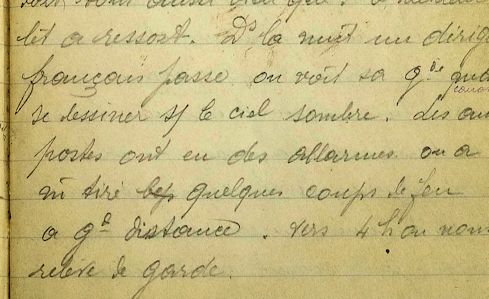 lit a ressort. Ds la nuit un dirige
français passe on voit sa gde
se dessiner s/ le ciel sombre. Les au
postes ont eu des allarmes on a
m tiré quelques coups de feu
a gde distance. Vers 4 h on nous
relève de garde.